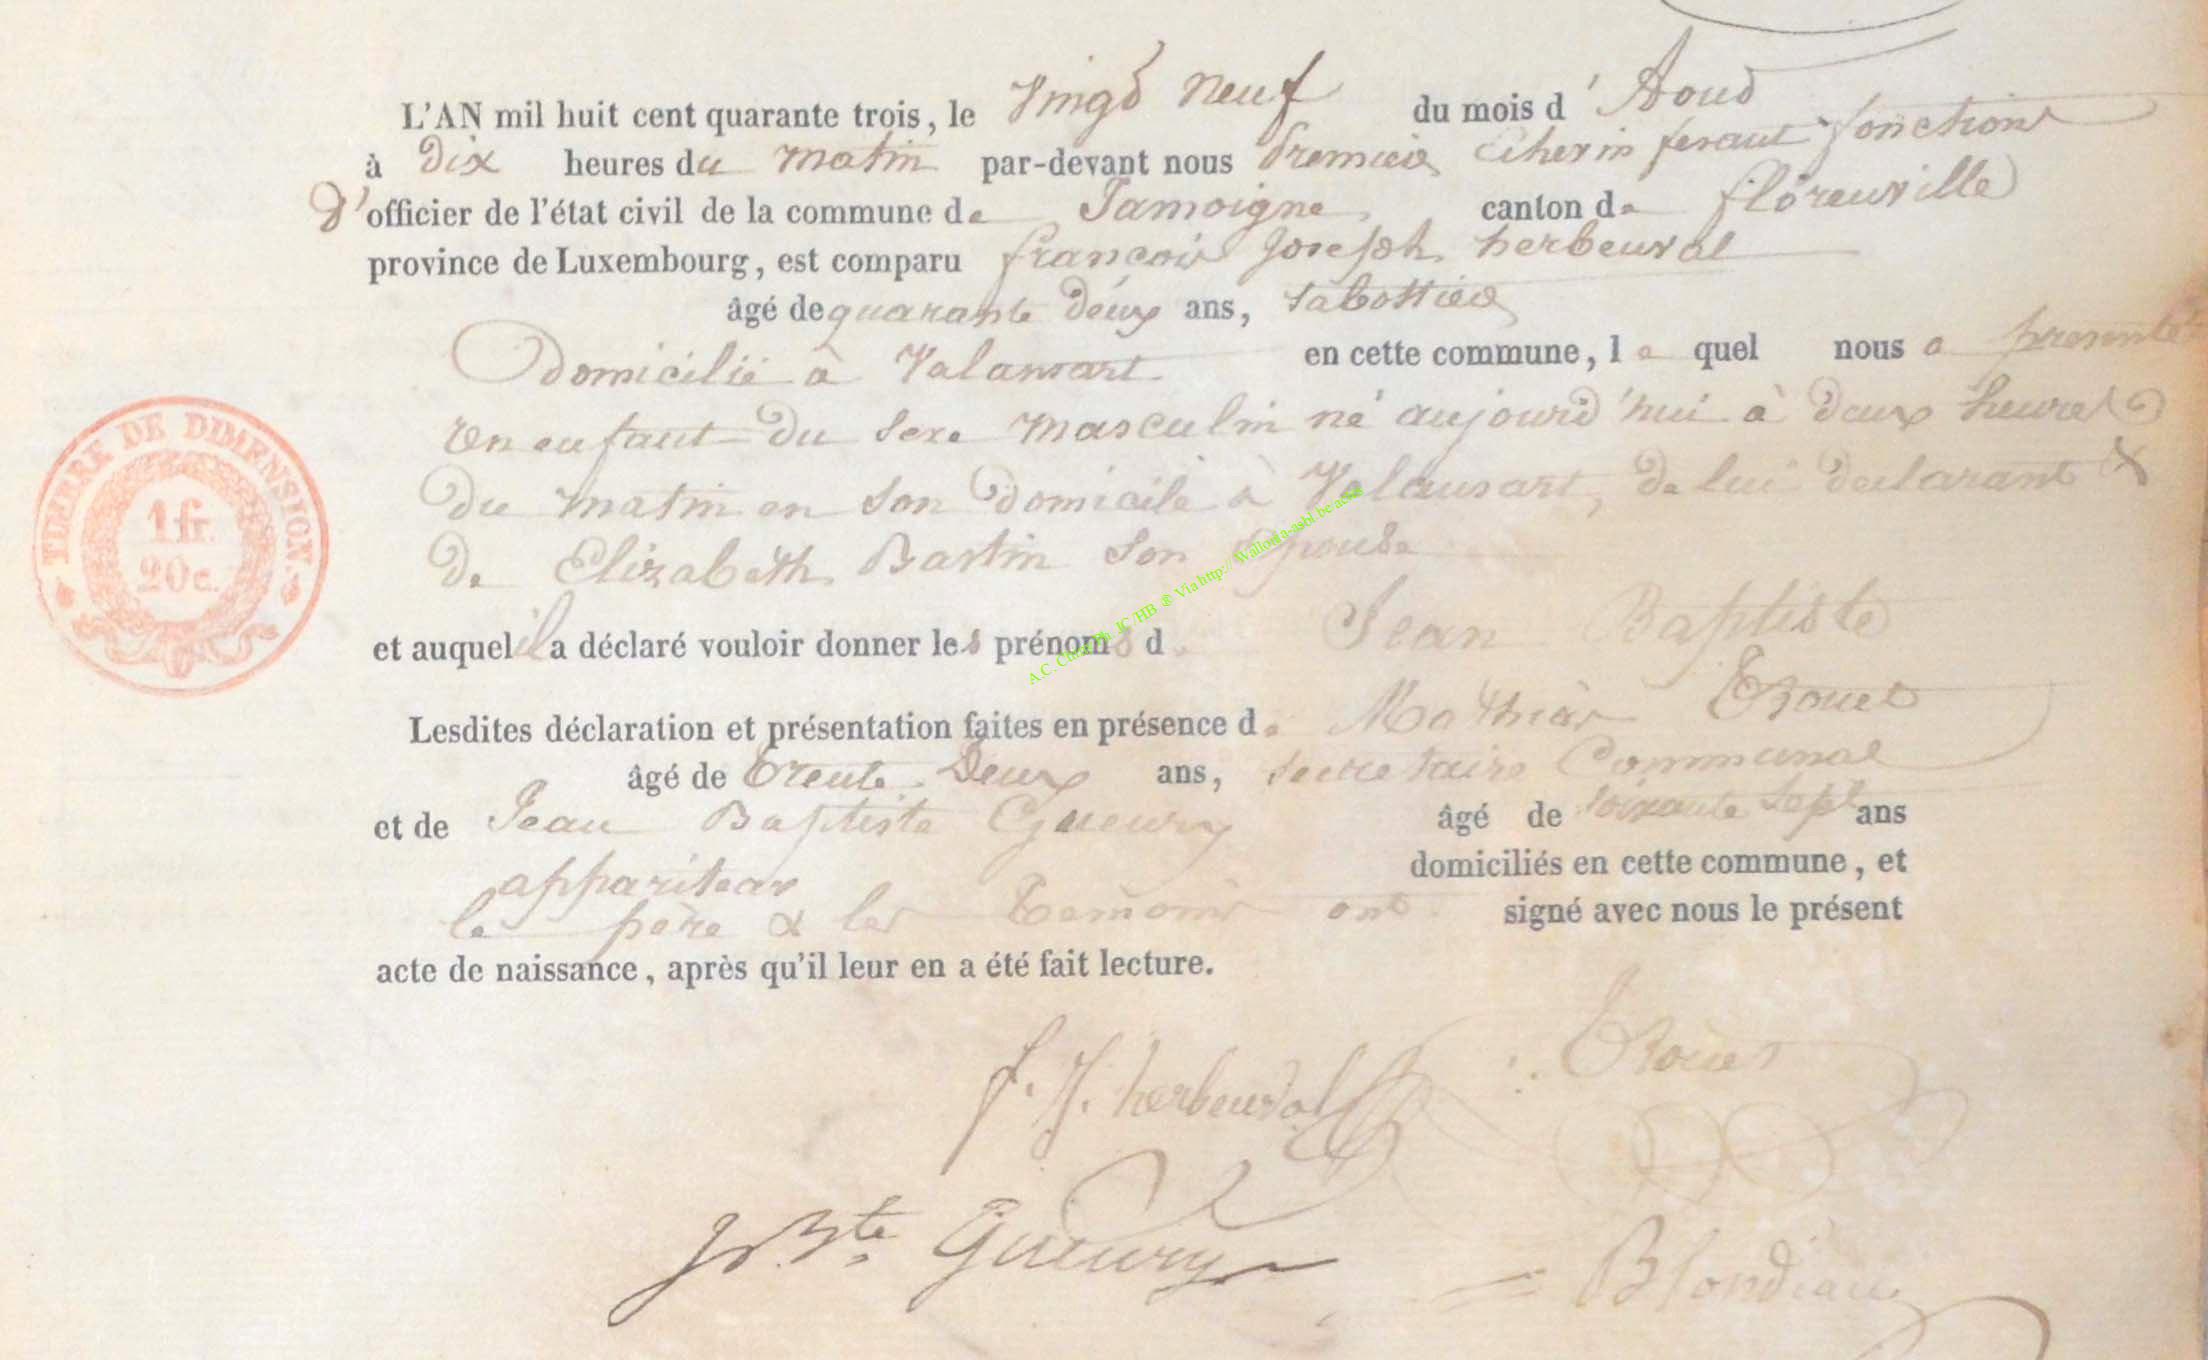 L'AN mil huit cent quarante trois, le Vingt neuf du mois d'Aout
à dix heures du matin par-devant nous Premier Echevin fesant fonctions
d'officier de l'état civil de la commune de Jamoigne canton de florenville
province de Luxembourg, est comparu françois Joseph herbeuval
âgé de quarante deux ans, sabottier
Domicilié à Valansart en cette commune, le quel nous a presenté
un enfant du sexe masculin né aujourd'hui à deux heures
du matin en son domicile à Valansart, de lui declarant &
de Elizabeth Bastin son Epouse
et auquel il a déclaré vouloir donner les prénoms de Jean Baptiste
Lesdites déclaration et présentation faites en présence de Mathias Trouet
âgé de trente deux ans, secretaire Communal
et de Jean Baptiste Gueury âgé de soixante sept ans
appariteur domiciliés en cette commune, et
le père & les temoins ont signé avec nous le présent
acte de naissance, après qu'il leur en a été fait lecture.
f. J. herbeuval Trouet
J Bte Gueury Blondiau
TIMBRE DE DIMENSION.
1 fr.
20 c.
Via http://Wallonia-asbl.be/actes